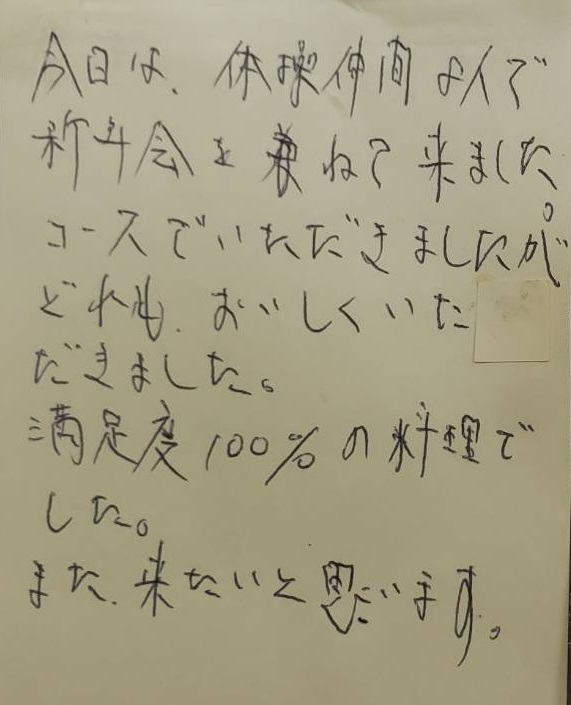 今日は、体操仲間4人で
新年会を兼ねて来ました。
コースでいただきましたが
どれも、おいしくいた
だきました。
満足度100%の料理で
した。
また、来たいと思います。